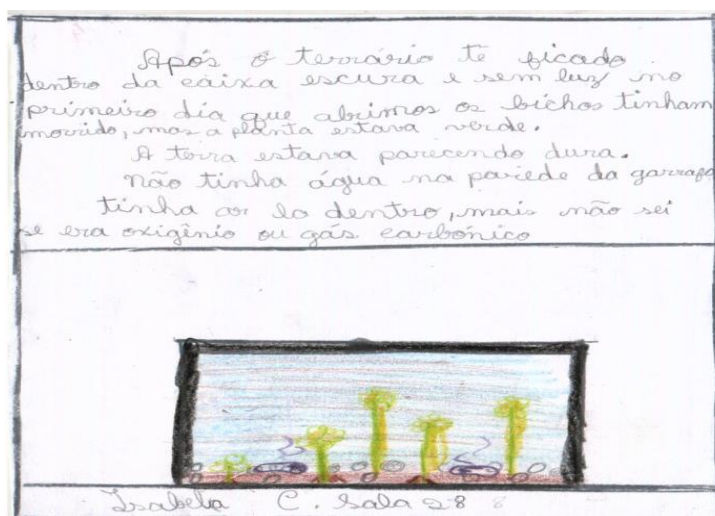 Após o terrário te ficado
dentro da caixa escura e sem luz no
primeiro dia que abrimos os bichos tinham
morrido, mas a planta estava verde.
A terra estava parecendo dura.
não tinha água na pariede da garrafa
tinha ar la dentro, mais não sei
se era oxigênio ou gás carbónico
Isabela C. Sala 28 8